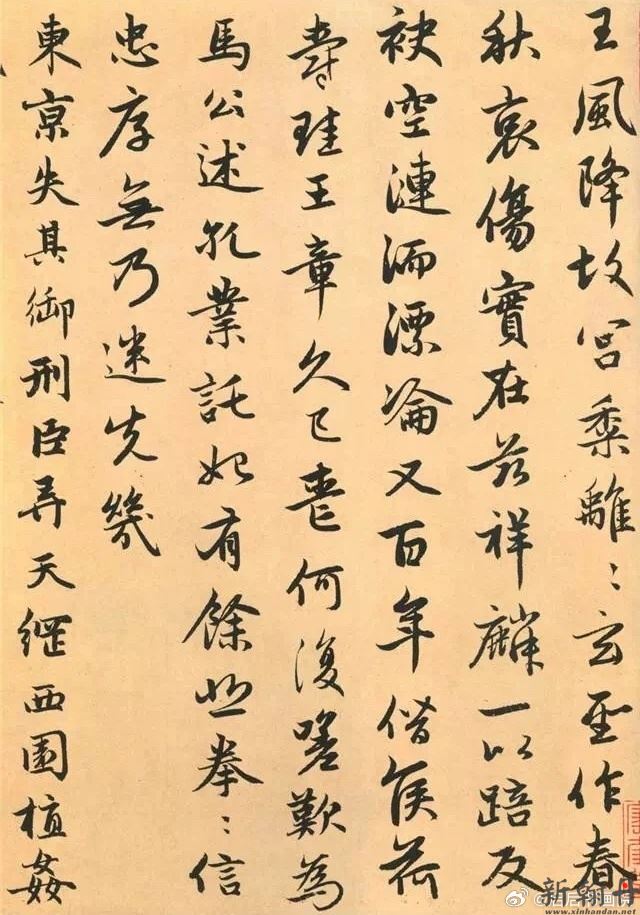 王風降故宮黍離〻玄聖作春
秋哀傷實在茲祥麟一以踣反
袂空漣洏漂淪又百年僭侯荷
爵珪王章久已喪何復嗟歎為
馬公述孔業託始有餘悲拳〻信
忠厚無乃迷先幾
東京失其御刑臣弄天綱西園植姦
www.xinhandan.net